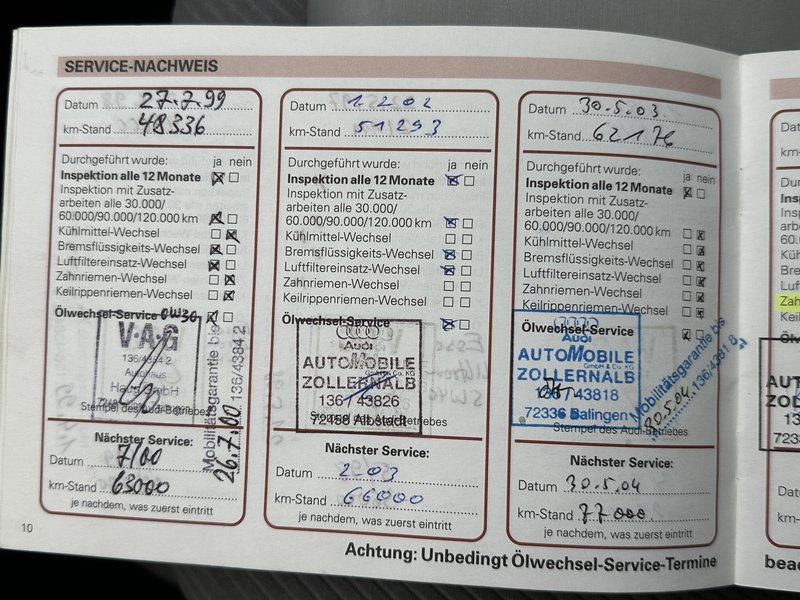 SERVICE-NACHWEIS
Datum 27.7.99
km-Stand 48336
Durchgeführt wurde: ja nein
Inspektion alle 12 Monate
Inspektion mit Zusatz-
arbeiten alle 30.000/
60.000/90.000/120.000 km
Kühlmittel-Wechsel
Bremsflüssigkeits-Wechsel
Luftfiltereinsatz-Wechsel
Zahnriemen-Wechsel
Keilrippenriemen-Wechsel
Ölwechsel-Service 0W30
V·A·G
136/4384 2
Autohaus
Stempel des Audi-Betriebes
Mobilitätsgarantie bis
26.7.00 136/4384 2
Nächster Service:
Datum 7/00
km-Stand 63000
je nachdem, was zuerst eintritt
10
Datum 1.2.02
km-Stand 51293
Durchgeführt wurde: ja nein
Inspektion alle 12 Monate
Inspektion mit Zusatz-
arbeiten alle 30.000/
60.000/90.000/120.000 km
Kühlmittel-Wechsel
Bremsflüssigkeits-Wechsel
Luftfiltereinsatz-Wechsel
Zahnriemen-Wechsel
Keilrippenriemen-Wechsel
Ölwechsel-Service
Audi
AUTOMOBILE
GmbH & Co. KG
ZOLLERNALB
136 / 43826
72458 Albstadt
Stempel des Audi-Betriebes
Nächster Service:
Datum 2.03
km-Stand 66000
je nachdem, was zuerst eintritt
Datum 30.5.03.
km-Stand 62176
Durchgeführt wurde: ja nein
Inspektion alle 12 Monate
Inspektion mit Zusatz-
arbeiten alle 30.000/
60.000/90.000/120.000 km
Kühlmittel-Wechsel
Bremsflüssigkeits-Wechsel
Luftfiltereinsatz-Wechsel
Zahnriemen-Wechsel
Keilrippenriemen-Wechsel
Ölwechsel-Service
Audi
AUTOMOBILE
GmbH & Co. KG
ZOLLERNALB
136 / 43818
72336 Balingen
Stempel des Audi-Betriebes
Mobilitätsgarantie bis
30.5.04 136/4381 8
Nächster Service:
Datum 30.5.04
km-Stand 77000.
je nachdem, was zuerst eintritt
Achtung: Unbedingt Ölwechsel-Service-Termine